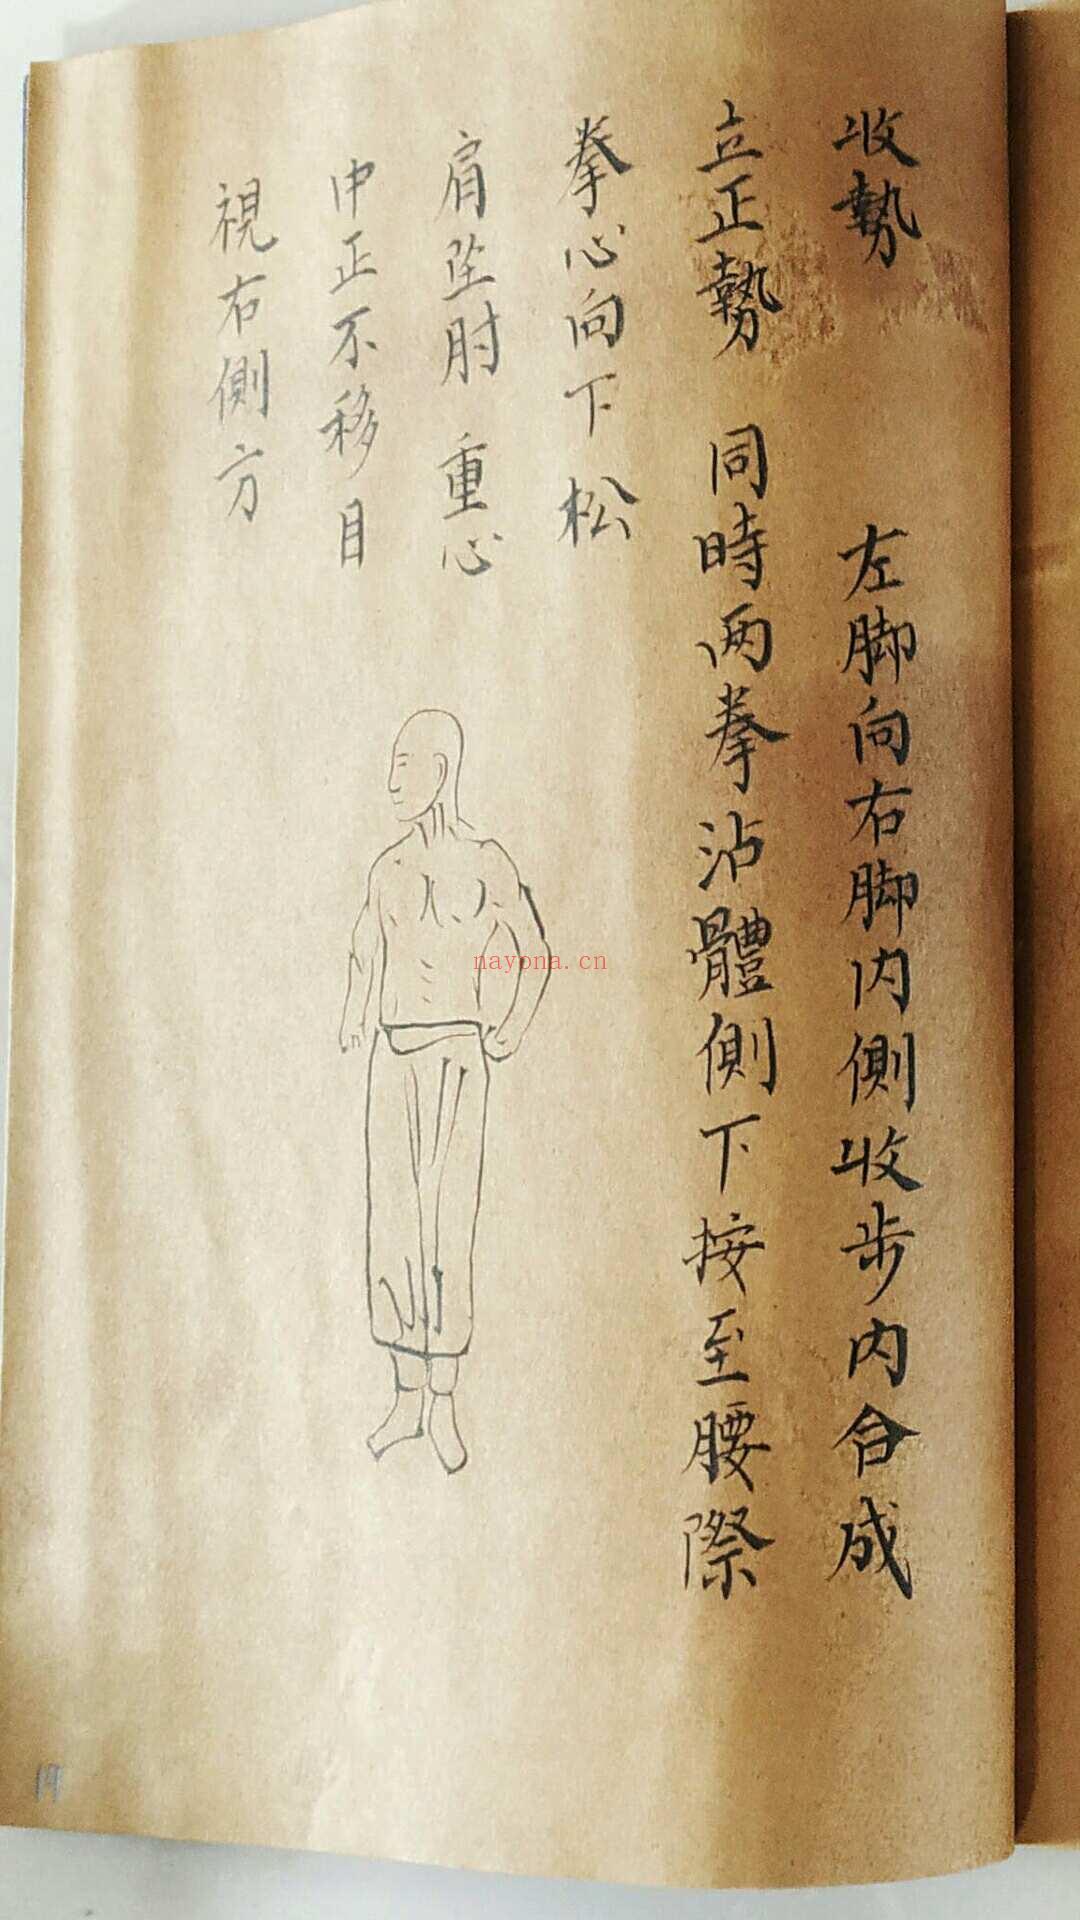 收勢 左脚向右脚内側收步内合成
立正勢 同時两拳沾體側下按至腰際
拳心向下松
肩坠肘 重心
中正不移目
視右側方
nayona.cn